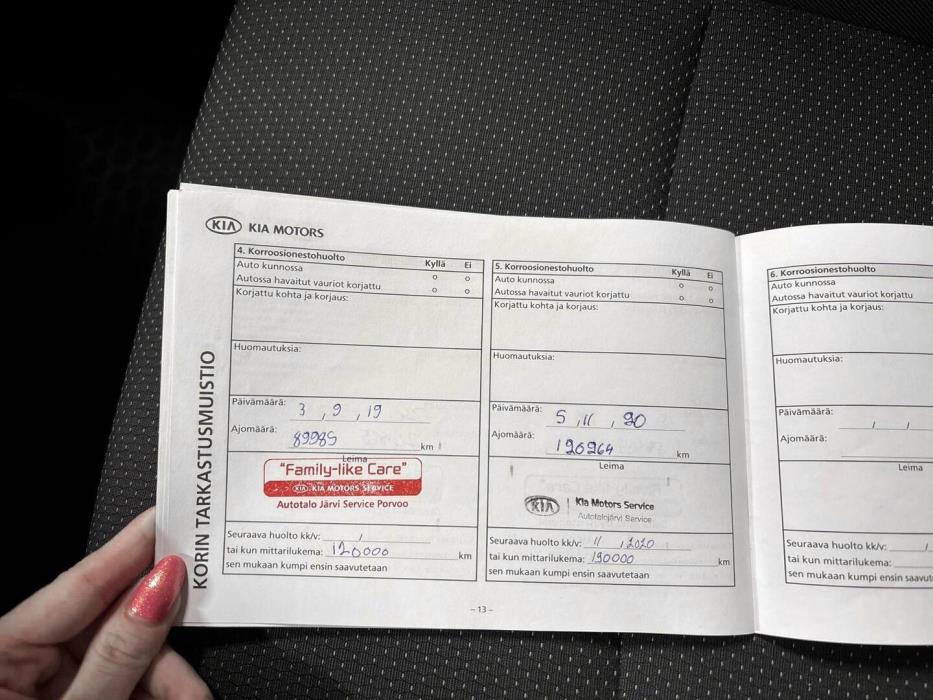 KIA KIA MOTORS
KORIN TARKASTUSMUISTIO
4. Korroosionestohuolto Kyllä Ei
Auto kunnossa o o
Autossa havaitut vauriot korjattu o o
Korjattu kohta ja korjaus:
Huomautuksia:
Päivämäärä: 3 , 9 , 19
Ajomäärä: 89985 km
Leima
"Family-like Care"
KIA KIA MOTORS SERVICE
Autotalo Järvi Service Porvoo
Seuraava huolto kk/v: /
tai kun mittarilukema: 120000 km
sen mukaan kumpi ensin saavutetaan
5. Korroosionestohuolto Kyllä Ei
Auto kunnossa o o
Autossa havaitut vauriot korjattu o o
Korjattu kohta ja korjaus:
Huomautuksia:
Päivämäärä: 5 , 11 , 20
Ajomäärä: 126264 km
Leima
KIA Kia Motors Service
Autotalojärvi Service
Seuraava huolto kk/v: 11 , 2020
tai kun mittarilukema: 190000 km
sen mukaan kumpi ensin saavutetaan
- 13 -
6. Korroosionestohuolto
Auto kunnossa
Autossa havaitut vauriot korjattu
Korjattu kohta ja korjaus:
Huomautuksia:
Päivämäärä: / /
Ajomäärä:
Leima
Seuraava huolto kk/v: /
tai kun mittarilukema:
sen mukaan kumpi ensin saavut